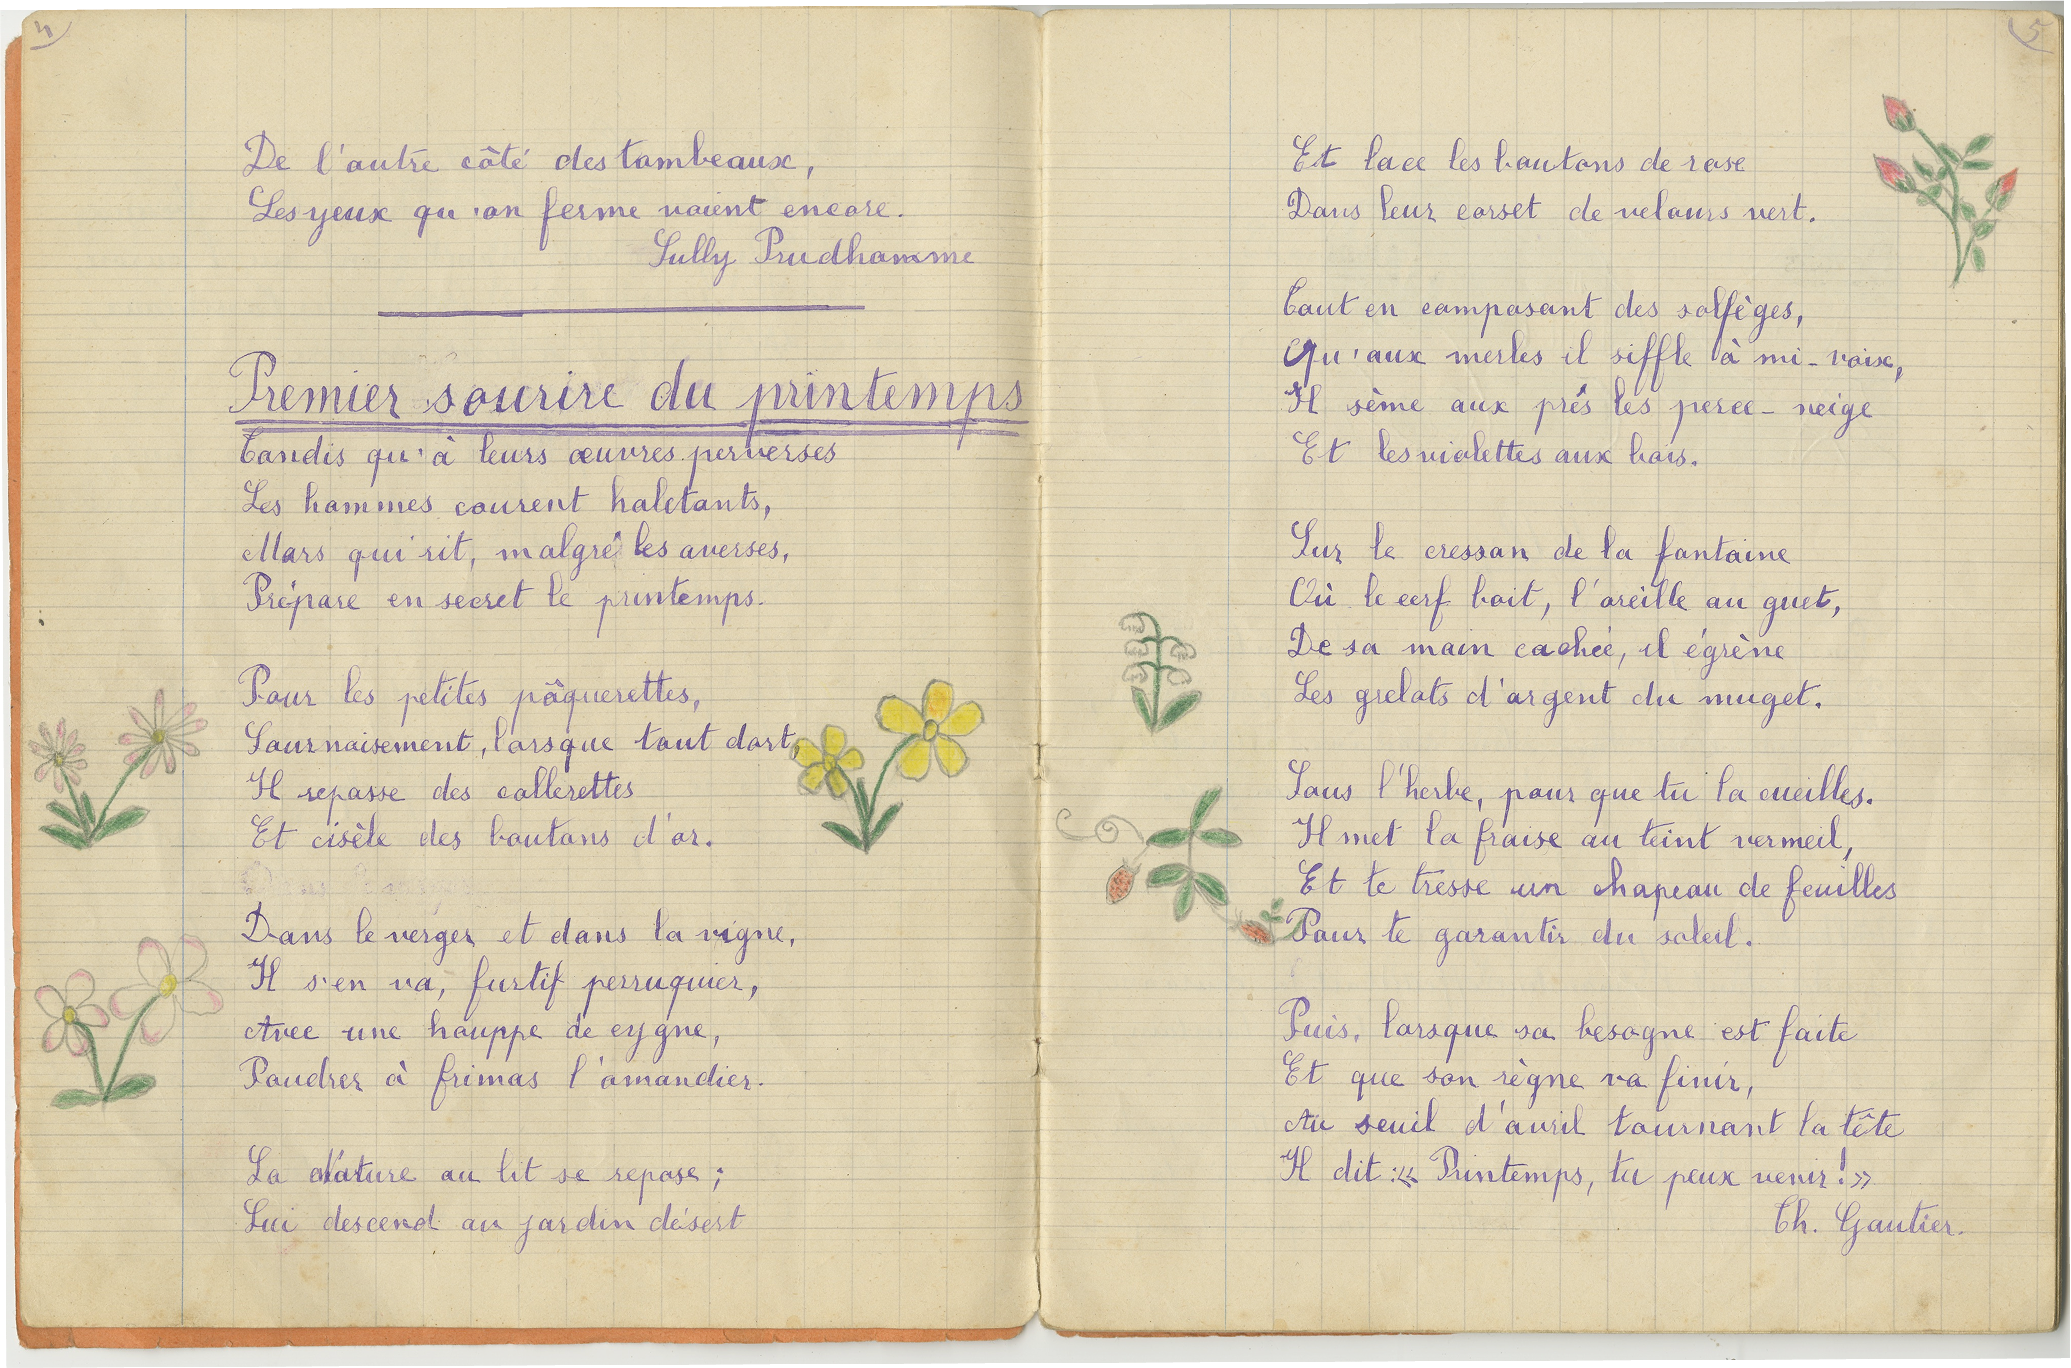 4
De l'autre côté des tombeaux,
Les yeux qu'on ferme voient encore.
Sully Prudhomme
Premier sourire du printemps
Tandis qu'à leurs œuvres perverses
Les hommes courent haletants,
Mars qui rit, malgré les averses,
Prépare en secret le printemps.
Pour les petites pâquerettes,
Sournoisement, lorsque tout dort,
Il repasse des collerettes
Et cisèle des boutons d'or.
Dans le verger et dans la vigne,
Il s'en va, furtif perruquier,
Avec une houppe de cygne,
Poudrer à frimas l'amandier.
La Nature au lit se repose ;
Lui descend au jardin désert
5
Et lace les boutons de rose
Dans leur corset de velours vert.
Tout en composant des solfèges,
Qu'aux merles il siffle à mi-voix,
Il sème aux prés les perce-neige
Et les violettes aux bois.
Sur le cresson de la fontaine
Où le cerf boit, l'oreille au guet,
De sa main cachée, il égrène
Les grelots d'argent du muget.
Sous l'herbe, pour que tu la cueilles.
Il met la fraise au teint vermeil,
Et te tresse un chapeau de feuilles
Pour te garantir du soleil.
Puis, lorsque sa besogne est faite
Et que son règne va finir,
Au seuil d'avril tournant la tête
Il dit : « Printemps, tu peux venir ! »
Th. Gautier.